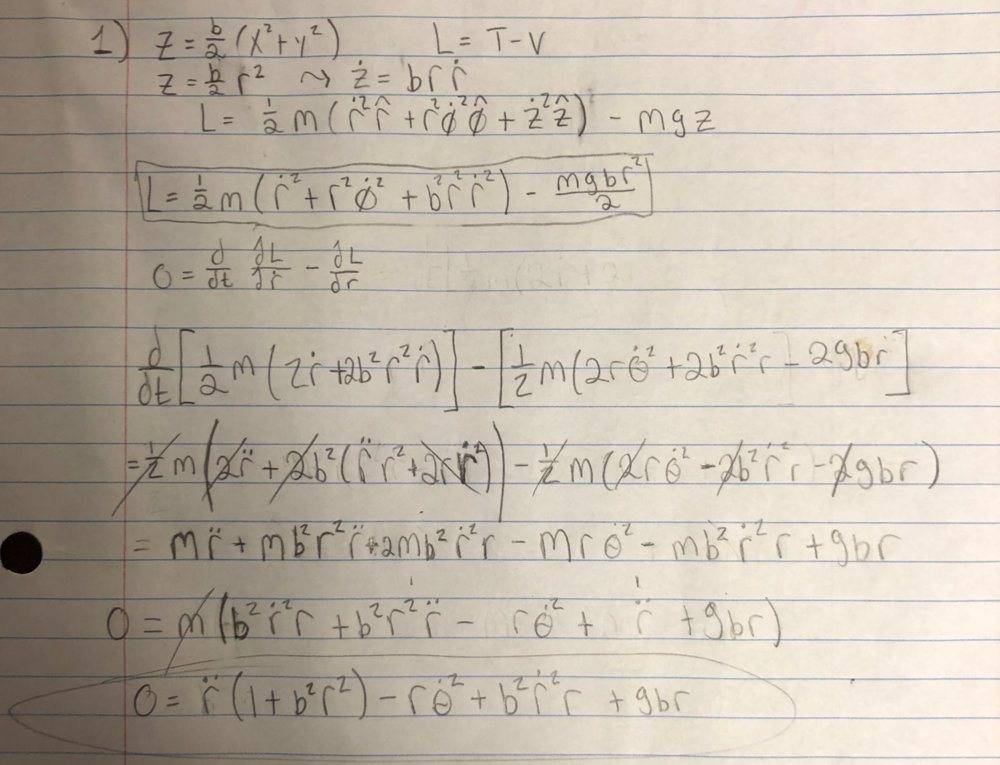 1) z = b/2 (x² + y²) L = T - V
z = b/2 r² ⇝ ż = b r ṙ
L = 1/2 m ( ṙ² r̂ + r² φ̇² φ̂ + ż² ẑ )² - mgz
L = 1/2 m ( ṙ² + r² φ̇² + b² r² ṙ² ) - mgbr²/2
0 = d/dt ∂L/∂ṙ - ∂L/∂r
d/dt [ 1/2 m ( 2ṙ + 2b² r² ṙ ) ] - [ 1/2 m ( 2r θ̇² + 2b² ṙ² r - 2gbr ]
= 1/2 m ( 2r̈ + 2b² ( r̈ r² + 2r ṙ² ) ) - 1/2 m ( 2r θ̇² - 2b² ṙ² r - 2gbr )
= m r̈ + m b² r² r̈ + 2m b² ṙ² r - m r θ̇² - m b² ṙ² r + gbr
0 = m ( b² ṙ² r + b² r² r̈ - r θ̇² + r̈ + gbr )
0 = r̈ ( 1 + b² r² ) - r θ̇² + b² ṙ² r + gbr